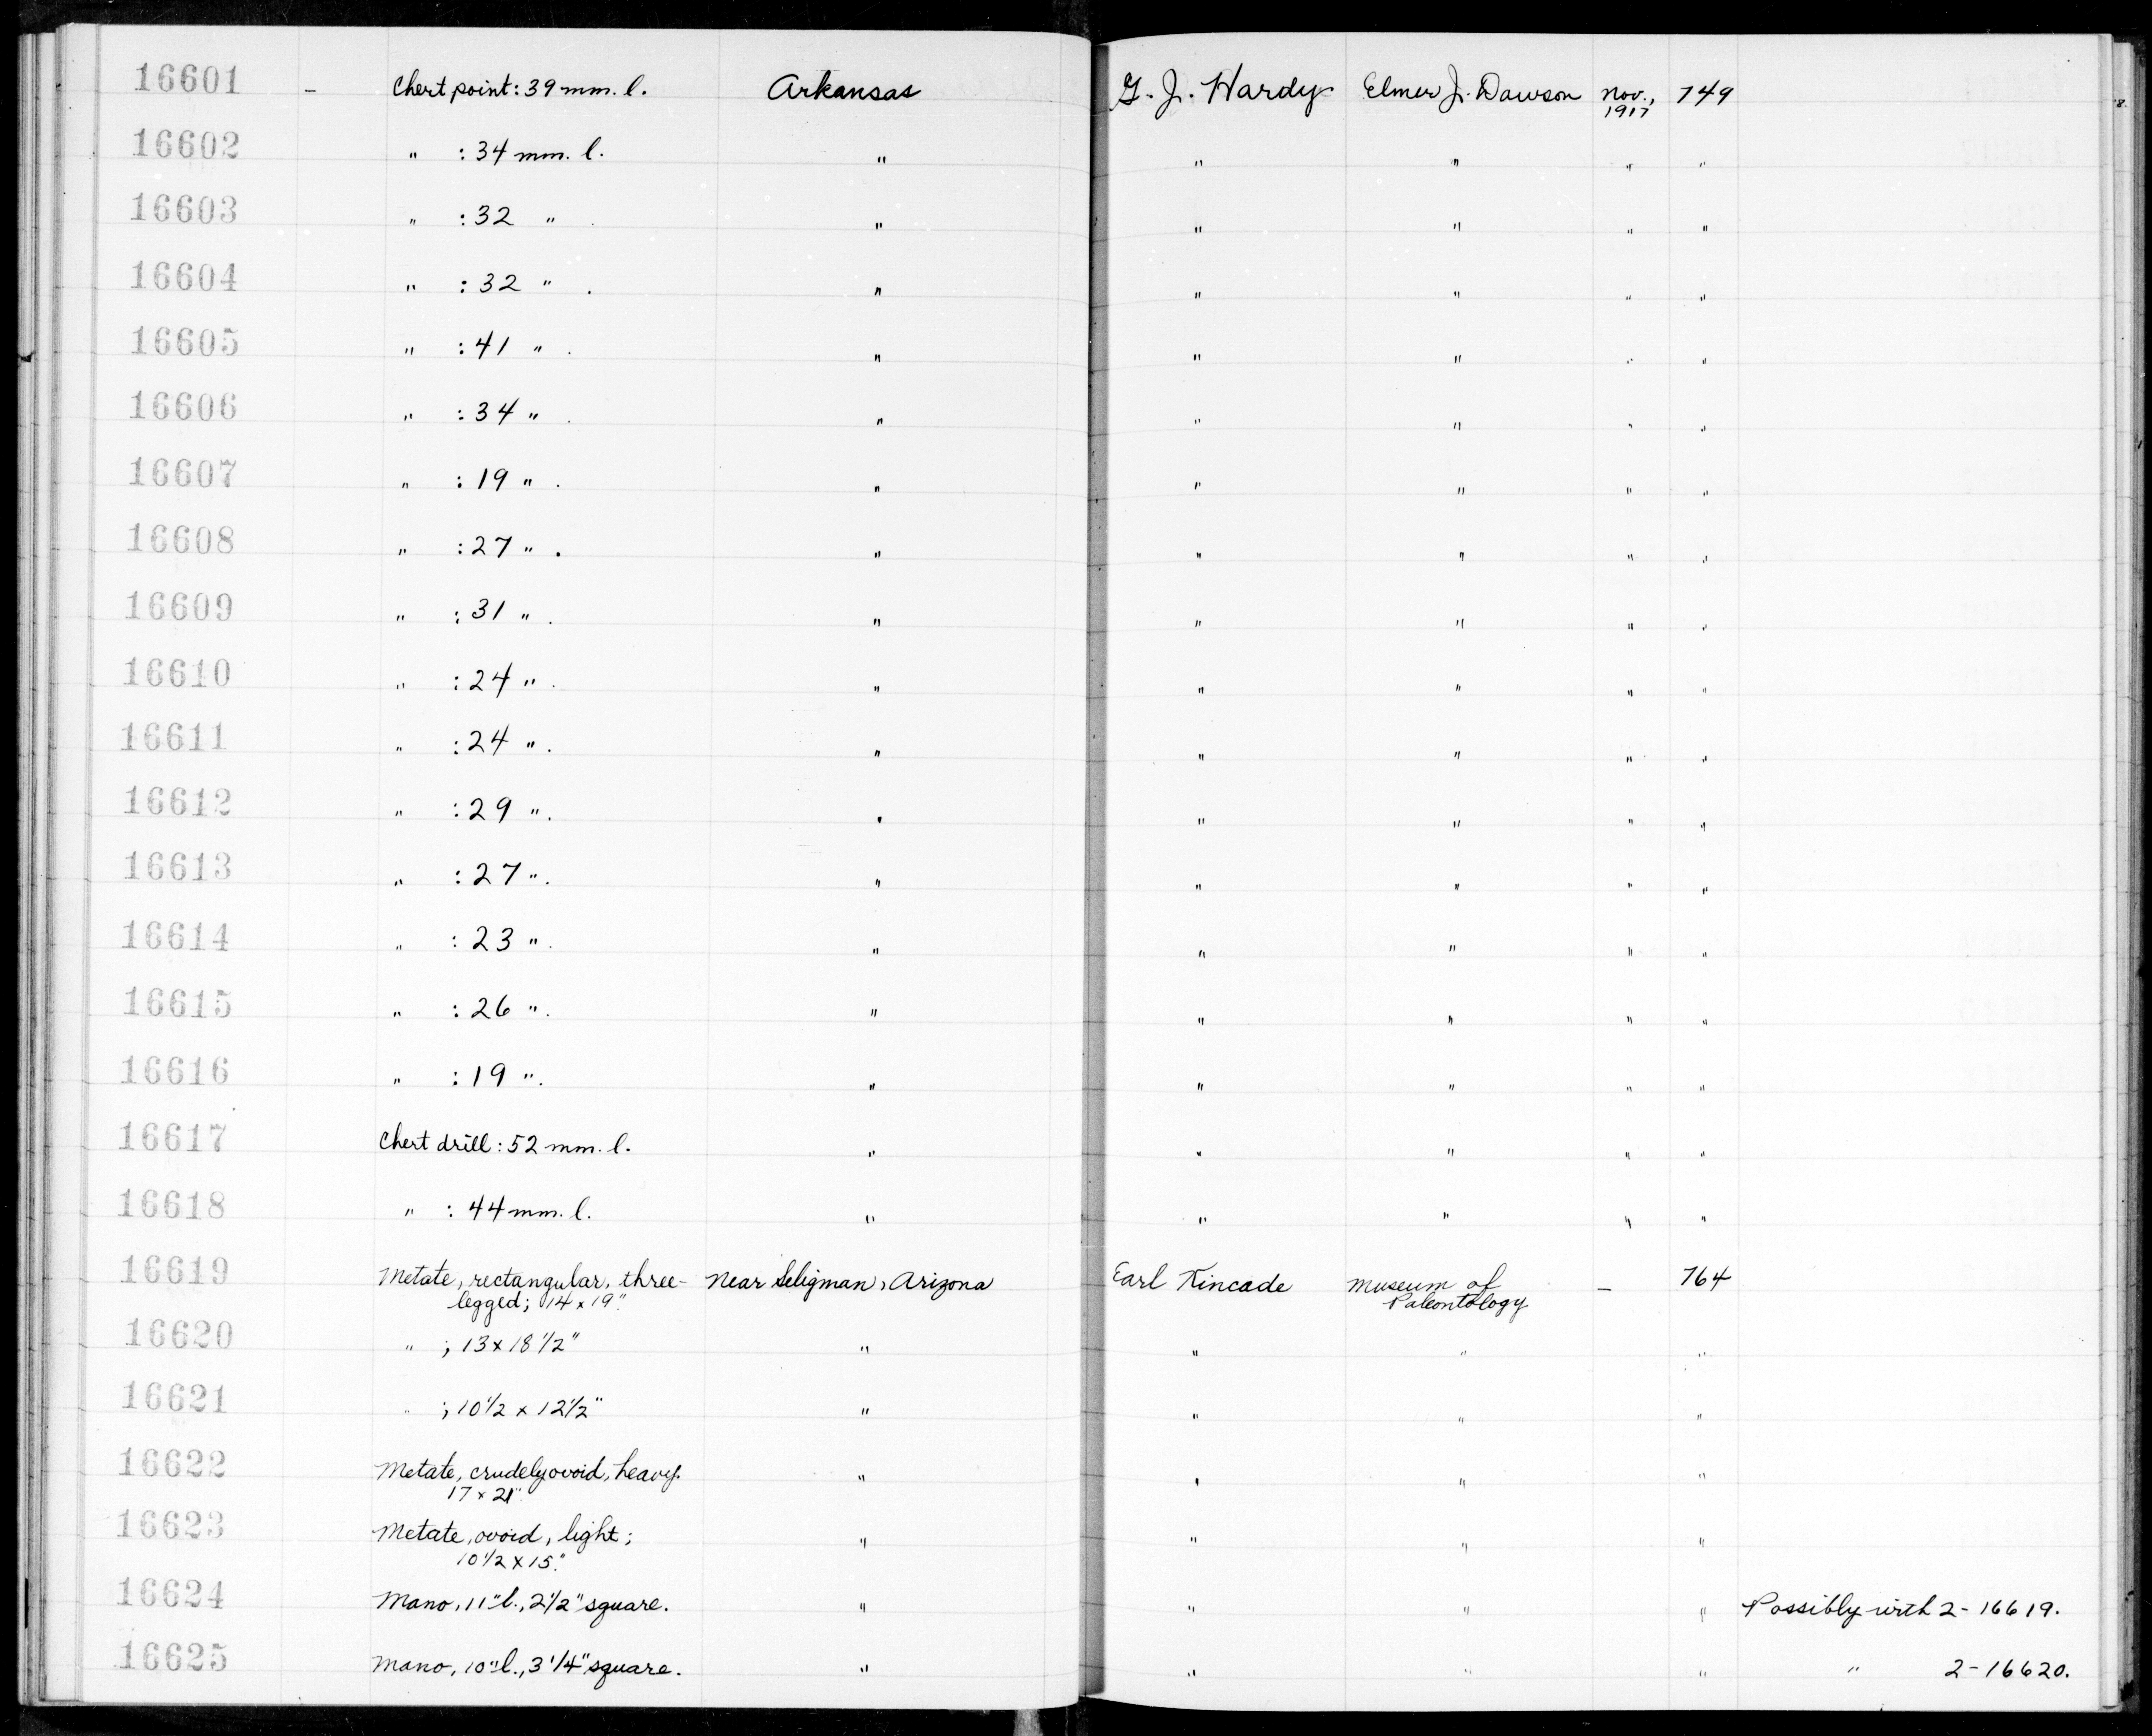 16601 - Chert point: 39 mm. l. Arkansas G. J. Hardy Elmer J. Dawson Nov., 1917 749
16602 " : 34 mm. l. " " " " "
16603 " : 32 " . " " " " "
16604 " : 32 " . " " " " "
16605 " : 41 " . " " " " "
16606 " : 34 " . " " " " "
16607 " : 19 " . " " " " "
16608 " : 27 " . " " " " "
16609 " : 31 " . " " " " "
16610 " : 24 " . " " " " "
16611 " : 24 " . " " " " "
16612 " : 29 " . " " " " "
16613 " : 27 " . " " " " "
16614 " : 23 " . " " " " "
16615 " : 26 " . " " " " "
16616 " : 19 " . " " " " "
16617 Chert drill: 52 mm. l. " " " " "
16618 " : 44 mm. l. " " " " "
16619 Metate, rectangular, three- Near Seligman, Arizona Earl Kincade Museum of - 764
legged; 14 x 19". Paleontology
16620 " ; 13 x 18 1/2" " " " "
16621 " ; 10 1/2 x 12 1/2" " " " "
16622 Metate, crudely ovoid, heavy. " " " "
17 x 21"
16623 Metate, ovoid, light; " " " "
10 1/2 x 15".
16624 Mano, 11" l., 2 1/2" square. " " " " Possibly with 2-16619.
16625 Mano, 10" l., 3 1/4" square. " " " " " 2-16620.